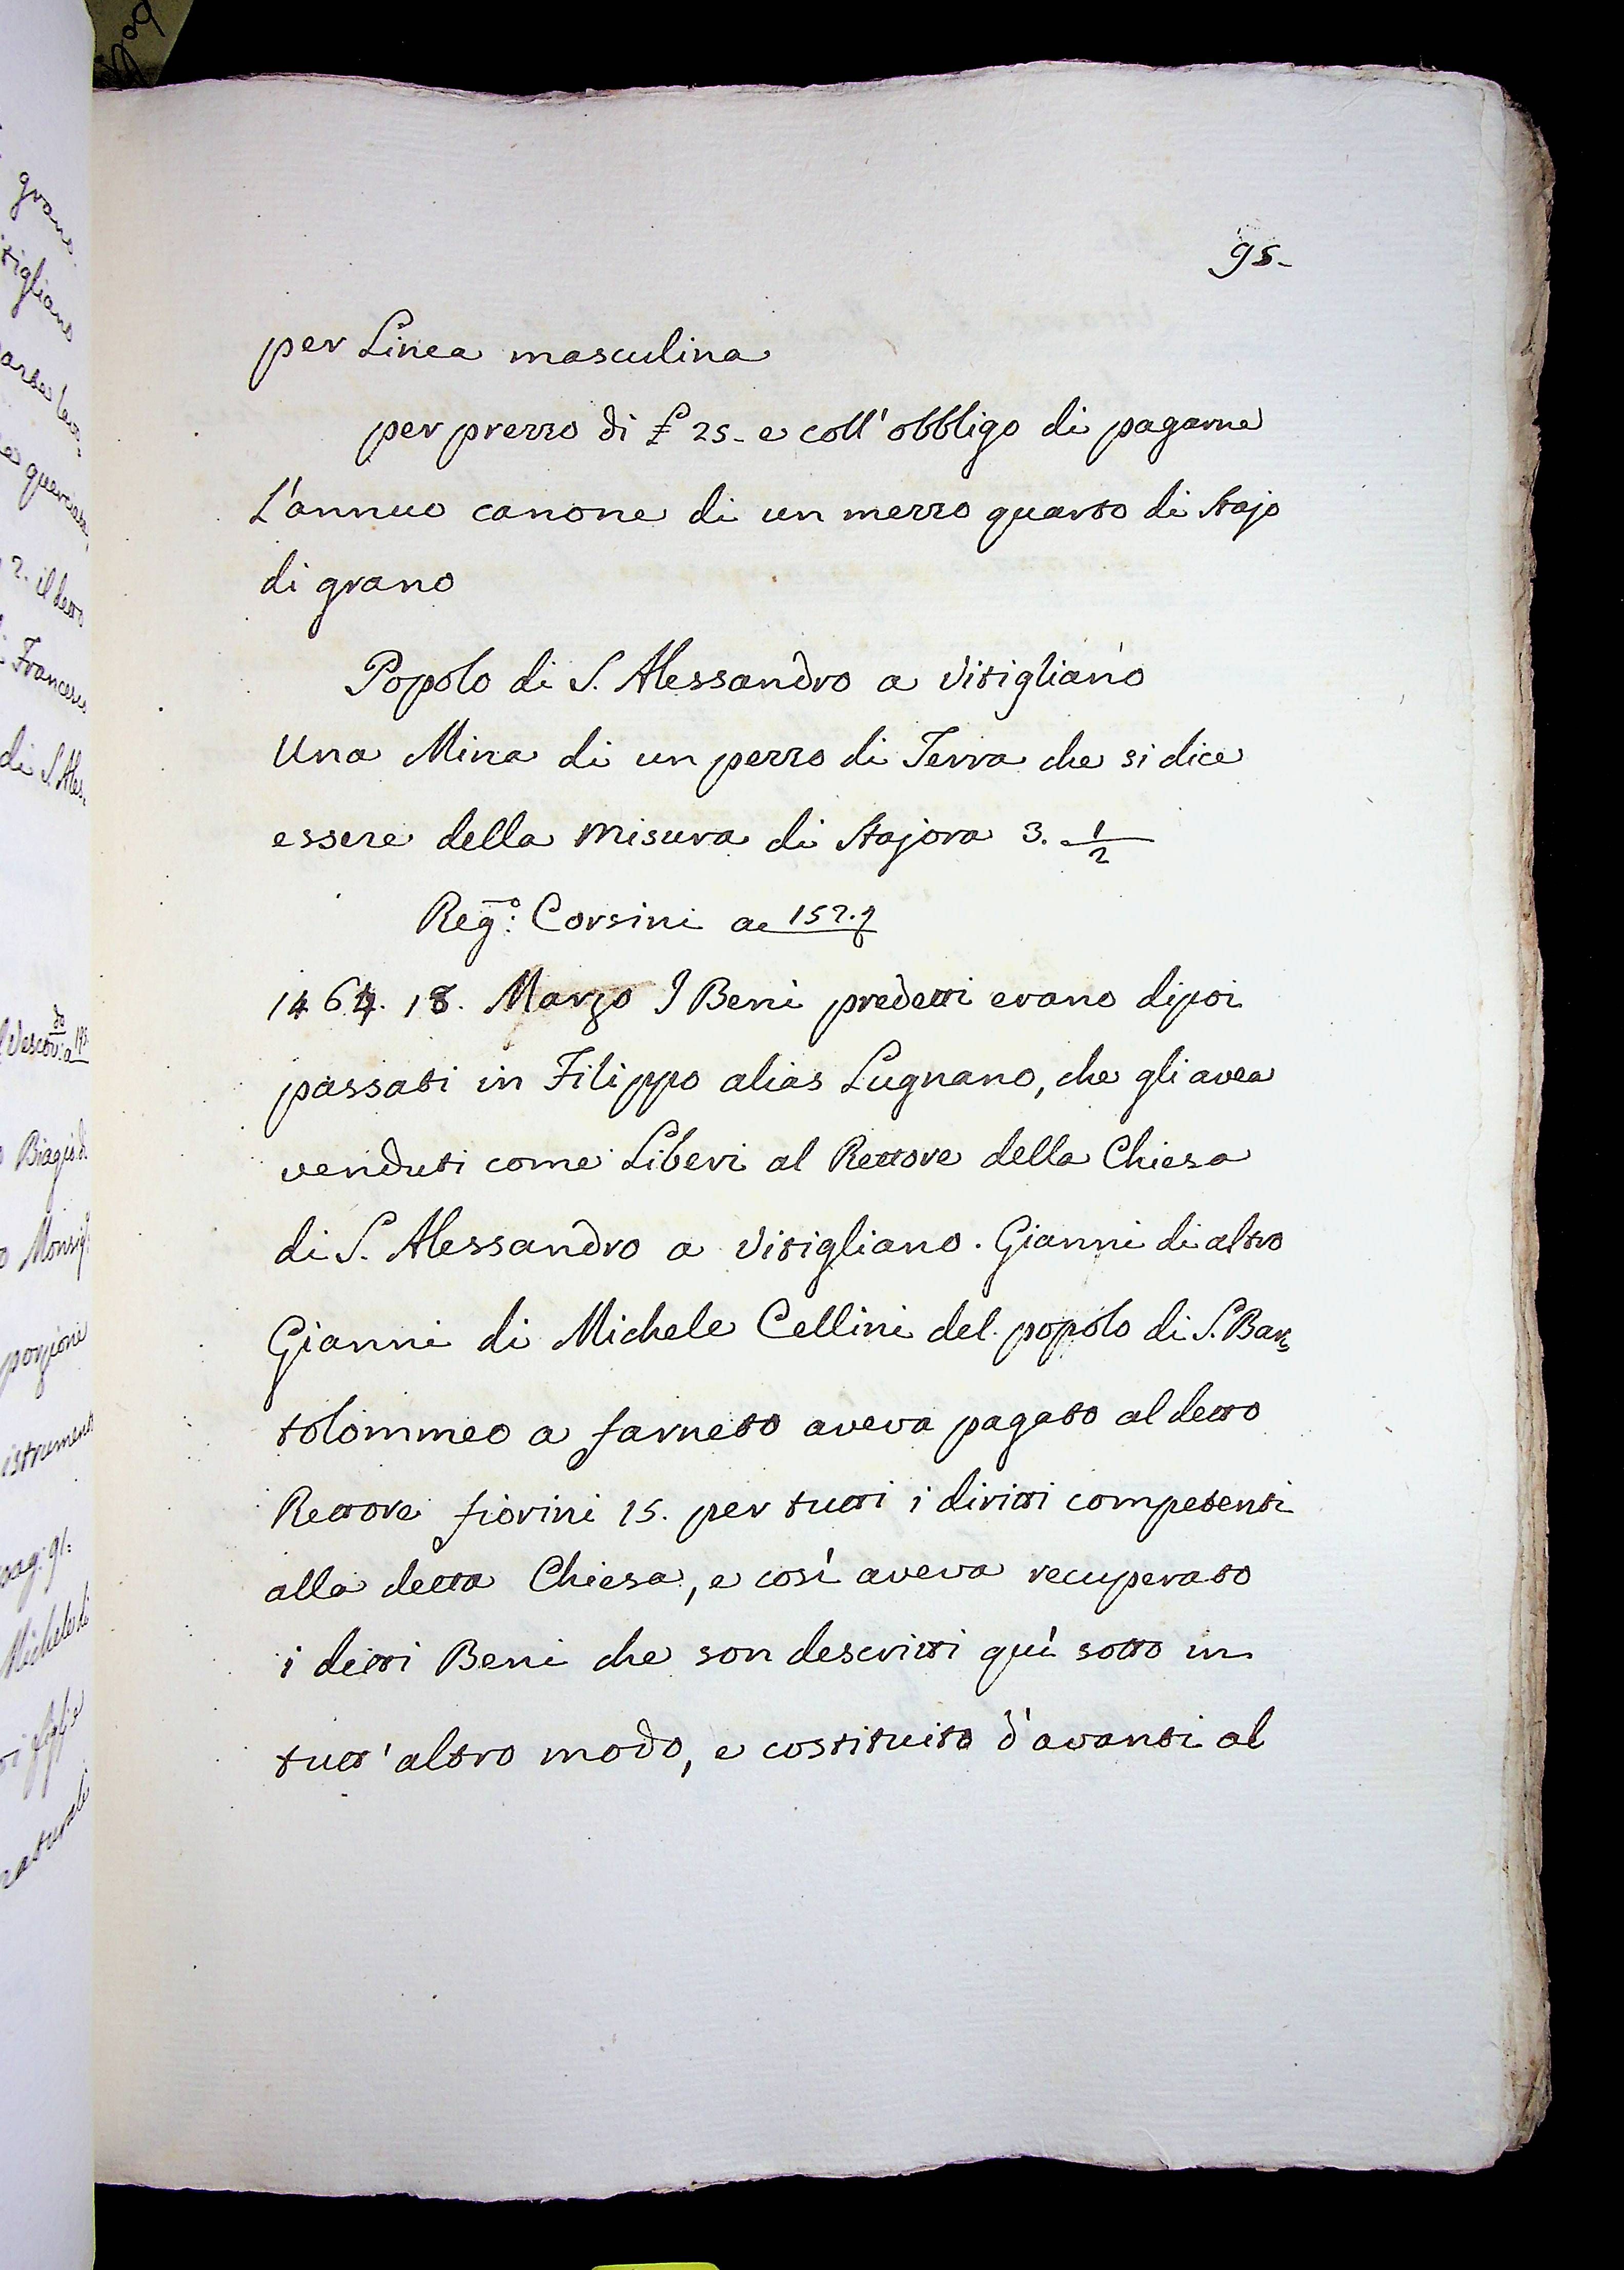 95.
per Linea masculina
per prezzo di £ 25. e coll' obbligo di pagarne
L'annuo canone di un mezzo quarto di Stajo
di grano
Popolo di S. Alessandro a Vitigliano
Una Mina di un pezzo di Terra che si dice
essere della misura di Stajora 3. 1/2
Reg.º: Corsini a 152.
1464. 18. Marzo I Beni predetti erano dipoi
passati in Filippo alias Lugnano, che gli avea
venduti come Liberi al Rettore della Chiesa
di S. Alessandro a Vitigliano. Gianni di altro
Gianni di Michele Cellini del popolo di S. Bar=
tolommeo a farneto aveva pagato al detto
Rettore fiorini 15. per tutti i diritti competenti
alla detta Chiesa, e così aveva recuperato
i detti Beni che son descritti quì sotto in
tutt' altro modo, e costituito d'avanti al
grano
tigliano
2. il detto
Francesco
di S. Ales=
Vescov: a
Biagio di
Monsig
porzione
istrumento
pag. 91:
Michele di
figlie
naturali